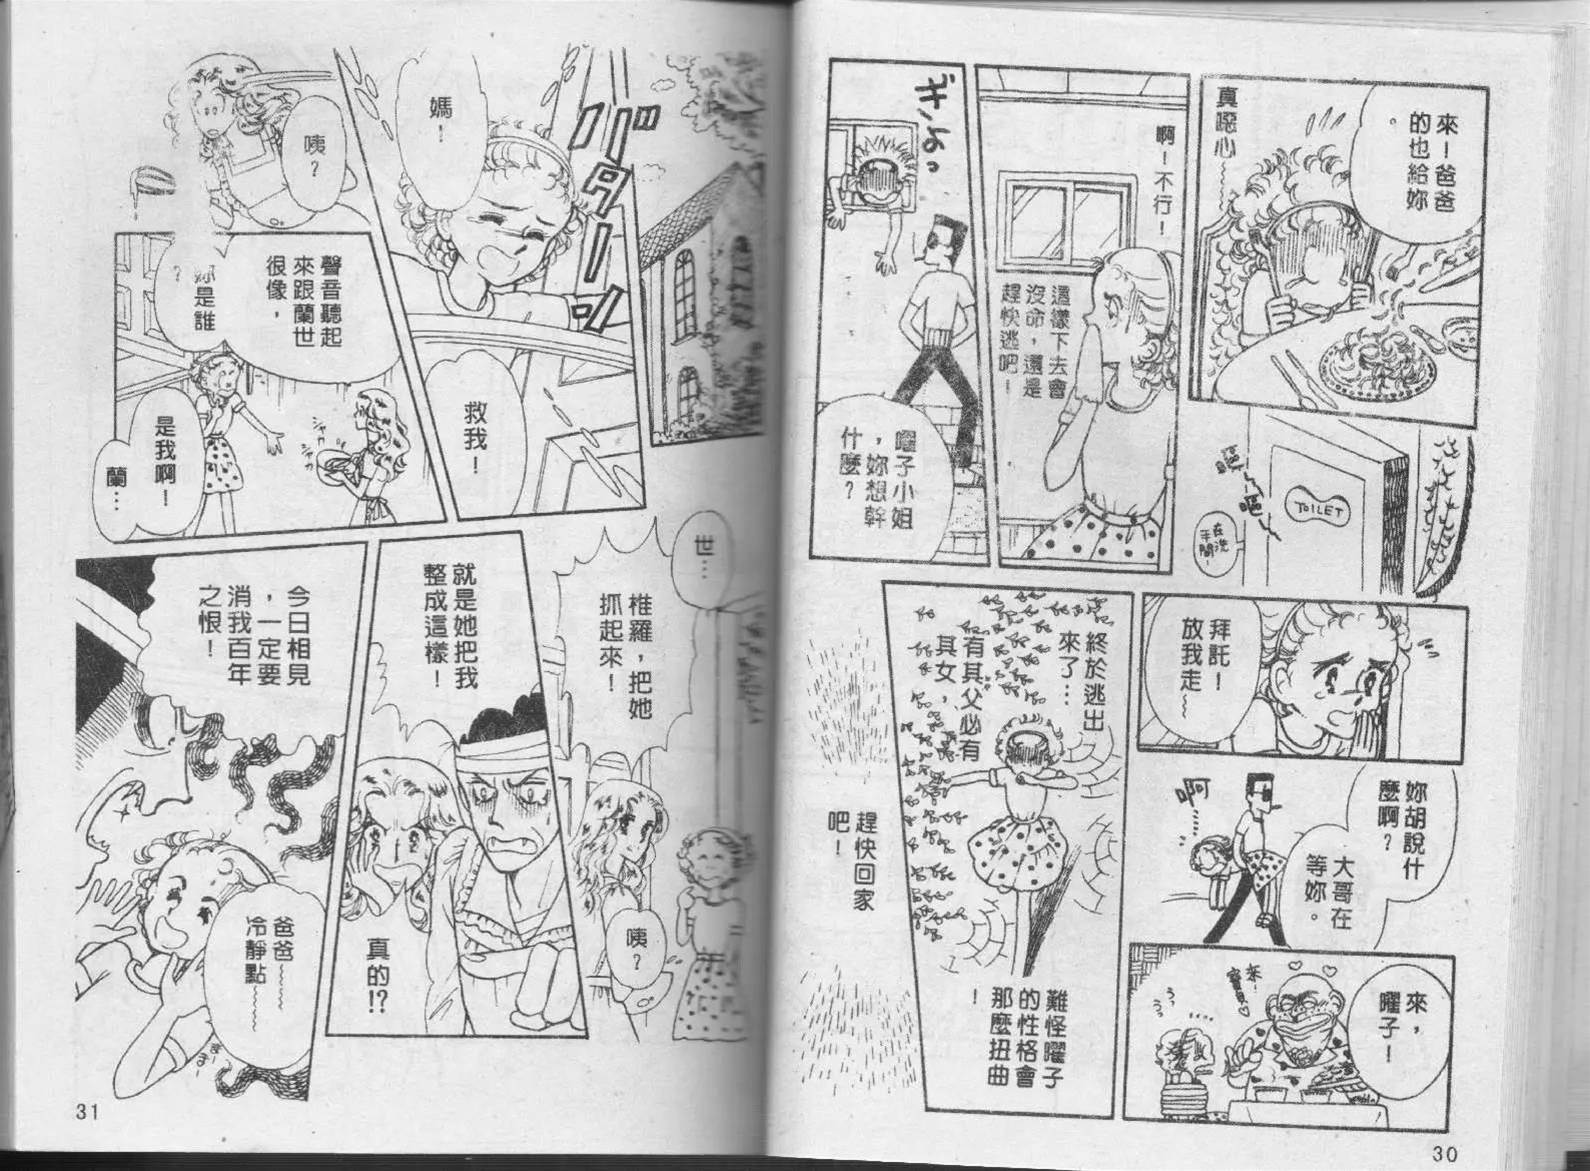 來！爸爸
的也給妳
。
真噁心
啊！不行！
這樣下去會
沒命，還是
趕快逃吧！
ギょっ
曜子小姐
，妳想幹
什麼？
嘔～
嘔～
TOILET
在洗
手間！
拜託！
放我走～
妳胡說什
麼啊？
大哥在
等妳。
啊
來，
曜子！
來，
寶貝
終於逃出
來了…
有其父必有
其女，
難怪曜子
的性格會
那麼扭曲
！
趕快回家
吧！
30
バターン
媽！
救我！
咦？
聲音聽起
來跟蘭世
很像，
妳是誰
？
是我啊！
蘭…
シャカ
シャカ
世…
椎羅，把她
抓起來！
咦？
就是她把我
整成這樣！
真的!?
今日相見
，一定要
消我百年
之恨！
爸爸～～
冷靜點～～
31